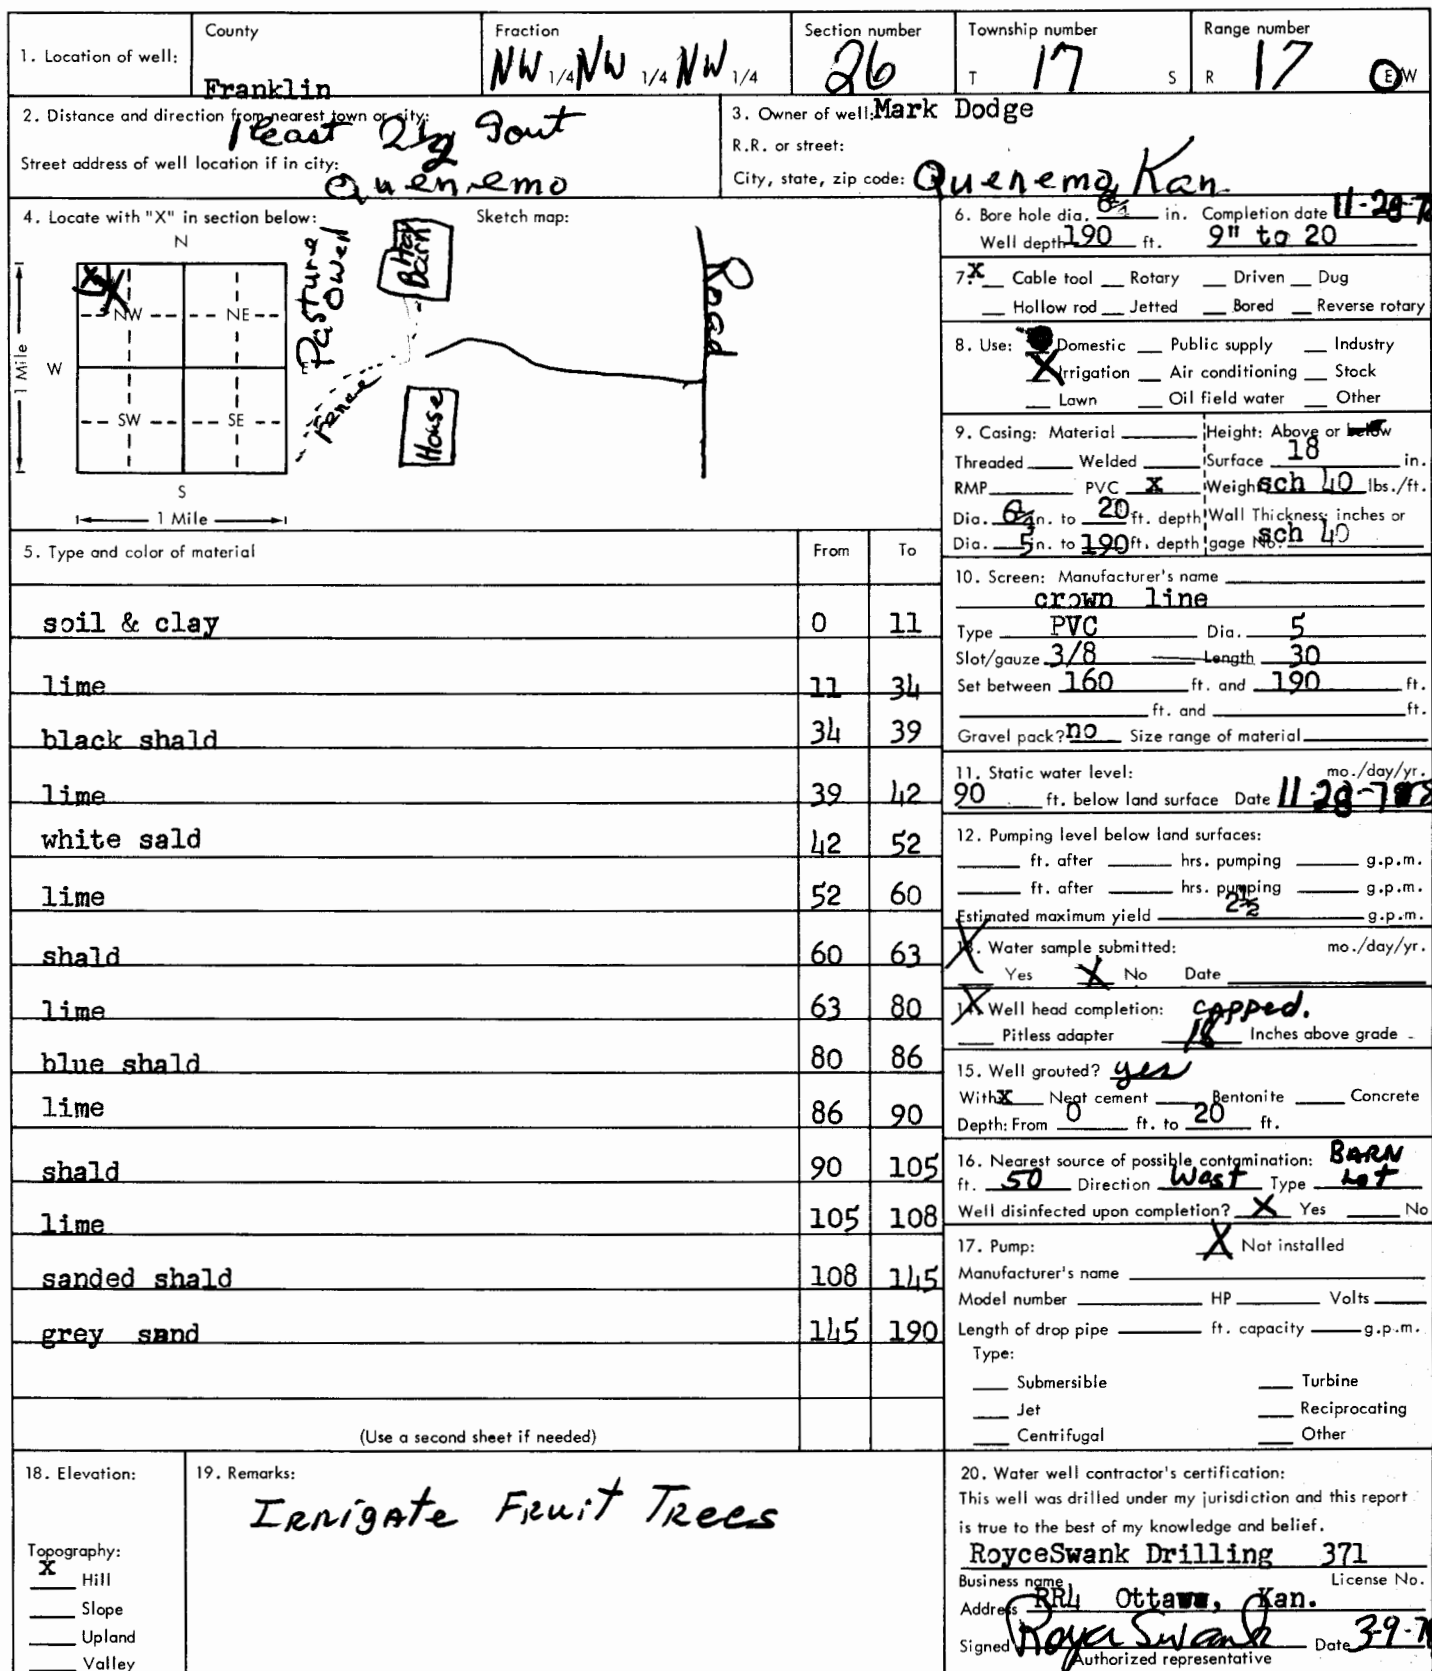 County Fraction Section number Township number Range number
1. Location of well: Franklin NW 1/4 NW 1/4 NW 1/4 26 T 17 S R 17 E W
2. Distance and direction from nearest town or city: 1 east 2 1/2 Sout
Street address of well location if in city: Quenemo
3. Owner of well: Mark Dodge
R.R. or street:
City, state, zip code: Quenemo, Kan
4. Locate with "X" in section below: Sketch map:
N
NW NE
W E
SW SE
S
1 Mile
1 Mile
Pasture
Well
Hay
Barn
Road
Fence
House
5. Type and color of material From To
soil & clay 0 11
lime 11 34
black shald 34 39
lime 39 42
white sald 42 52
lime 52 60
shald 60 63
lime 63 80
blue shald 80 86
lime 86 90
shald 90 105
lime 105 108
sanded shald 108 145
grey sand 145 190
(Use a second sheet if needed)
6. Bore hole dia. in. Completion date 11-28-
Well depth 190 ft. 9" to 20
7. X Cable tool Rotary Driven Dug
Hollow rod Jetted Bored Reverse rotary
8. Use: Domestic Public supply Industry
X Irrigation Air conditioning Stock
Lawn Oil field water Other
9. Casing: Material Height: Above or below
Threaded Welded Surface 18 in.
RMP PVC X Weight sch 40 lbs./ft.
Dia. in. to 20 ft. depth Wall Thickness: inches or
Dia. 5 in. to 190 ft. depth gage No. sch 40
10. Screen: Manufacturer's name
crown line
Type PVC Dia. 5
Slot/gauze 3/8 Length 30
Set between 160 ft. and 190 ft.
ft. and ft.
Gravel pack? no Size range of material
11. Static water level: mo./day/yr.
90 ft. below land surface Date 11-28-
12. Pumping level below land surfaces:
ft. after hrs. pumping g.p.m.
ft. after hrs. pumping g.p.m.
Estimated maximum yield 2 1/2 g.p.m.
13. Water sample submitted: mo./day/yr.
Yes X No Date
14. Well head completion: capped.
Pitless adapter 18 Inches above grade
15. Well grouted? yes
With X Neat cement Bentonite Concrete
Depth: From 0 ft. to 20 ft.
16. Nearest source of possible contamination: BARN
ft. 50 Direction West Type Lot
Well disinfected upon completion? X Yes No
17. Pump: X Not installed
Manufacturer's name
Model number HP Volts
Length of drop pipe ft. capacity g.p.m.
Type:
Submersible Turbine
Jet Reciprocating
Centrifugal Other
18. Elevation:
Topography:
X Hill
Slope
Upland
Valley
19. Remarks:
Irrigate Fruit Trees
20. Water well contractor's certification:
This well was drilled under my jurisdiction and this report
is true to the best of my knowledge and belief.
RoyceSwank Drilling 371
Business name License No.
Address RR4 Ottawa, Kan.
Signed Royce Swank Date 3-9-
Authorized representative